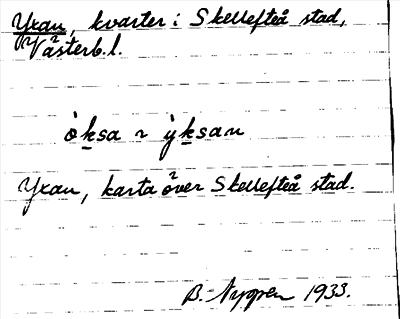 Yxan, kvarter i Skellefteå stad,
Västerb.l.
ò̀ksa ~ ỳksan
Yxan, karta över Skellefteå stad.
B. Nygren 1933.